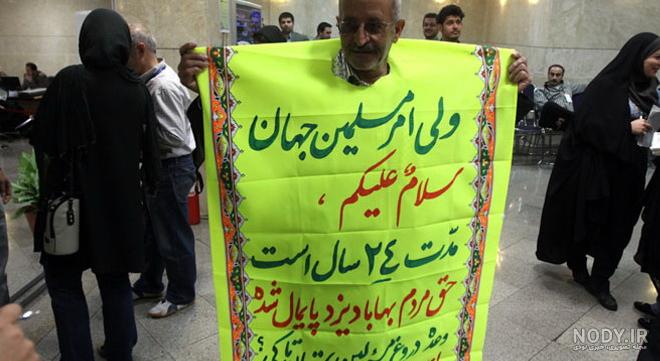 ولی امر مسلمین جهان
سلامٌ علیکم ،
مدّت ٢٤ سال است
حق مردم بهاباد یزد پایمال شده
وعده دروغ مسئولین استان تا کی؟
NODY.IR